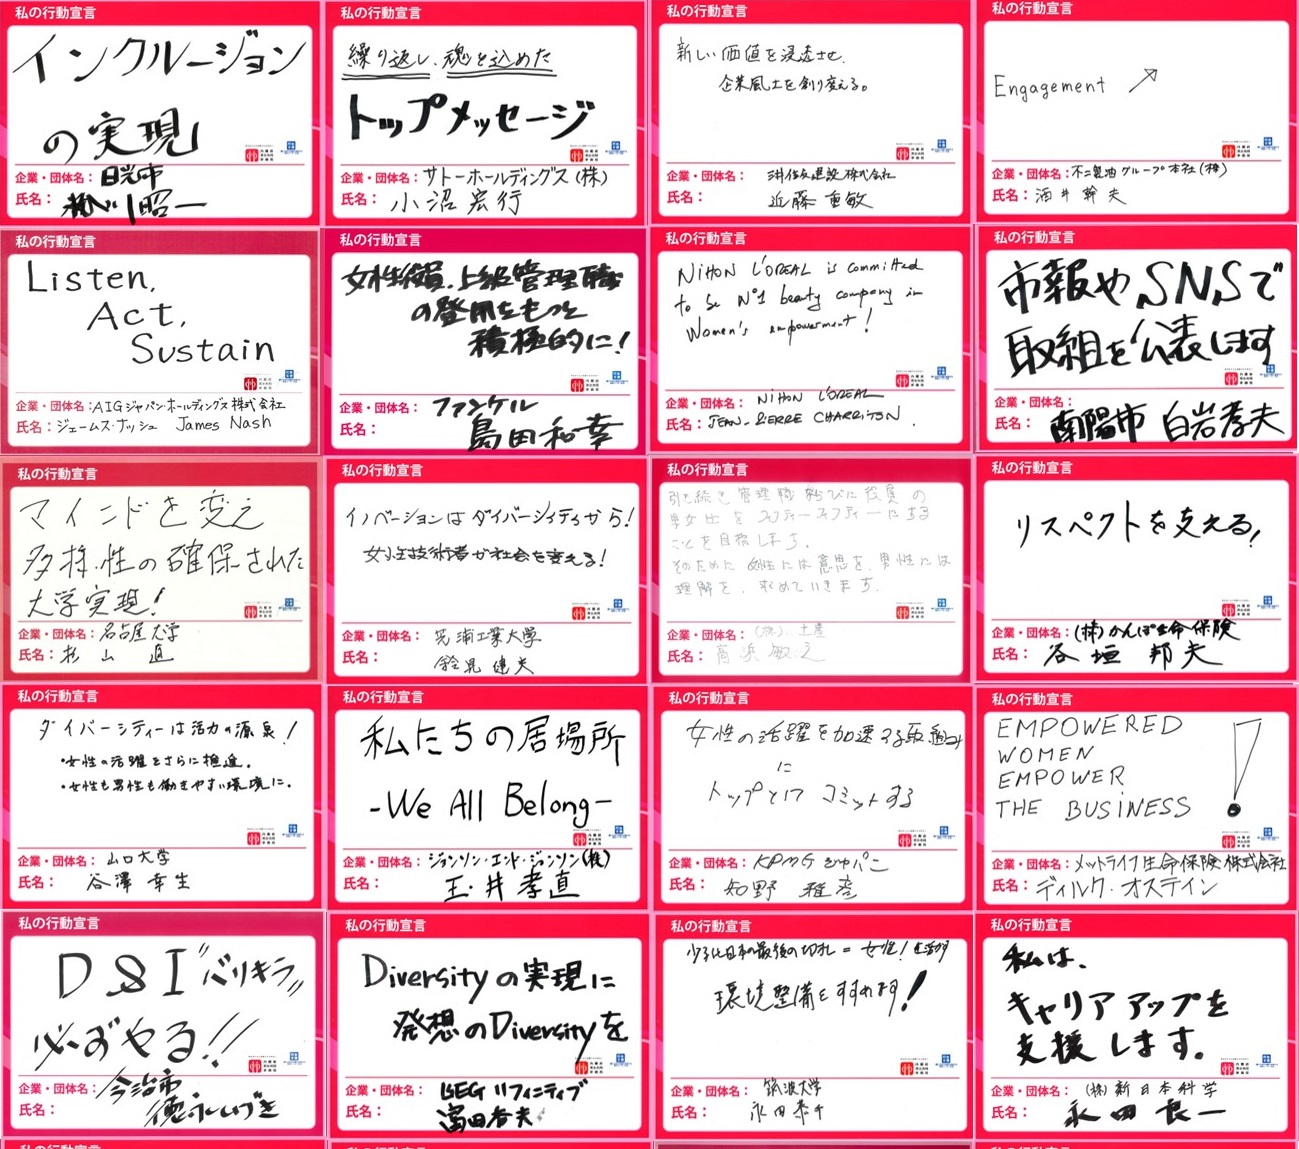 私の行動宣言
インクルージョン
の実現
企業・団体名：日光市
氏名：
私の行動宣言
繰り返し、魂を込めた
トップメッセージ
企業・団体名：サトーホールディングス(株)
氏名：小沼宏行
私の行動宣言
新しい価値を浸透させ、
企業風土を創り変える。
企業・団体名：三井住友建設株式会社
氏名：近藤重敏
私の行動宣言
Engagement ↗
企業・団体名：不二製油グループ本社(株)
氏名：酒井幹夫
私の行動宣言
Listen,
Act,
Sustain
企業・団体名：AIGジャパン・ホールディングス株式会社
氏名：ジェームス・ナッシュ James Nash
私の行動宣言
女性役員、上級管理職
の登用をもっと
積極的に！
企業・団体名：ファンケル
氏名：島田和幸
私の行動宣言
NIHON L'OREAL is committed
to be N°1 beauty company in
Women's empowerment!
企業・団体名：NIHON L'OREAL
氏名：JEAN-PIERRE CHARRITON
私の行動宣言
市報やSNSで
取組を公表します
企業・団体名：
氏名：南陽市 白岩孝夫
私の行動宣言
マインドを変え
多様性の確保された
大学実現！
企業・団体名：名古屋大学
氏名：杉山 直
私の行動宣言
イノベーションはダイバーシィティから！
女性技術者が社会を変える！
企業・団体名：芝浦工業大学
氏名：鈴見健夫
私の行動宣言
引き続き管理職並びに役員の
男女比をフィフティーフィフティーにする
ことを目指します。
そのために女性には意思を、男性には
理解を、求めていきます。
企業・団体名：(株)
氏名：高浜敏之
私の行動宣言
リスペクトを支える！
企業・団体名：(株)かんぽ生命保険
氏名：谷垣邦夫
私の行動宣言
ダイバーシティーは活力の源泉！
・女性の活躍をさらに推進。
・女性も男性も働きやすい環境に。
企業・団体名：山口大学
氏名：谷澤幸生
私の行動宣言
私たちの居場所
-We All Belong-
企業・団体名：ジョンソン・エンド・ジョンソン(株)
氏名：玉井孝直
私の行動宣言
女性の活躍を加速する取組み
に
トップとしてコミットする
企業・団体名：KPMGジャパン
氏名：知野雅彦
私の行動宣言
EMPOWERED
WOMEN
EMPOWER
THE BUSINESS!
企業・団体名：メットライフ生命保険株式会社
氏名：ディルク・オステイン
私の行動宣言
DSI"バリキラ"
必ずやる!!
企業・団体名：今治市
氏名：徳永しげき
私の行動宣言
Diversityの実現に
発想のDiversityを
企業・団体名：リフィニティブ
氏名：富田秀夫
私の行動宣言
少子化日本の最後の切札＝女性！
環境整備をすすめます！
企業・団体名：筑波大学
氏名：永田恭介
私の行動宣言
私は、
キャリアアップを
支援します。
企業・団体名：(株)新日本科学
氏名：永田良一
私の行動宣言
私の行動宣言